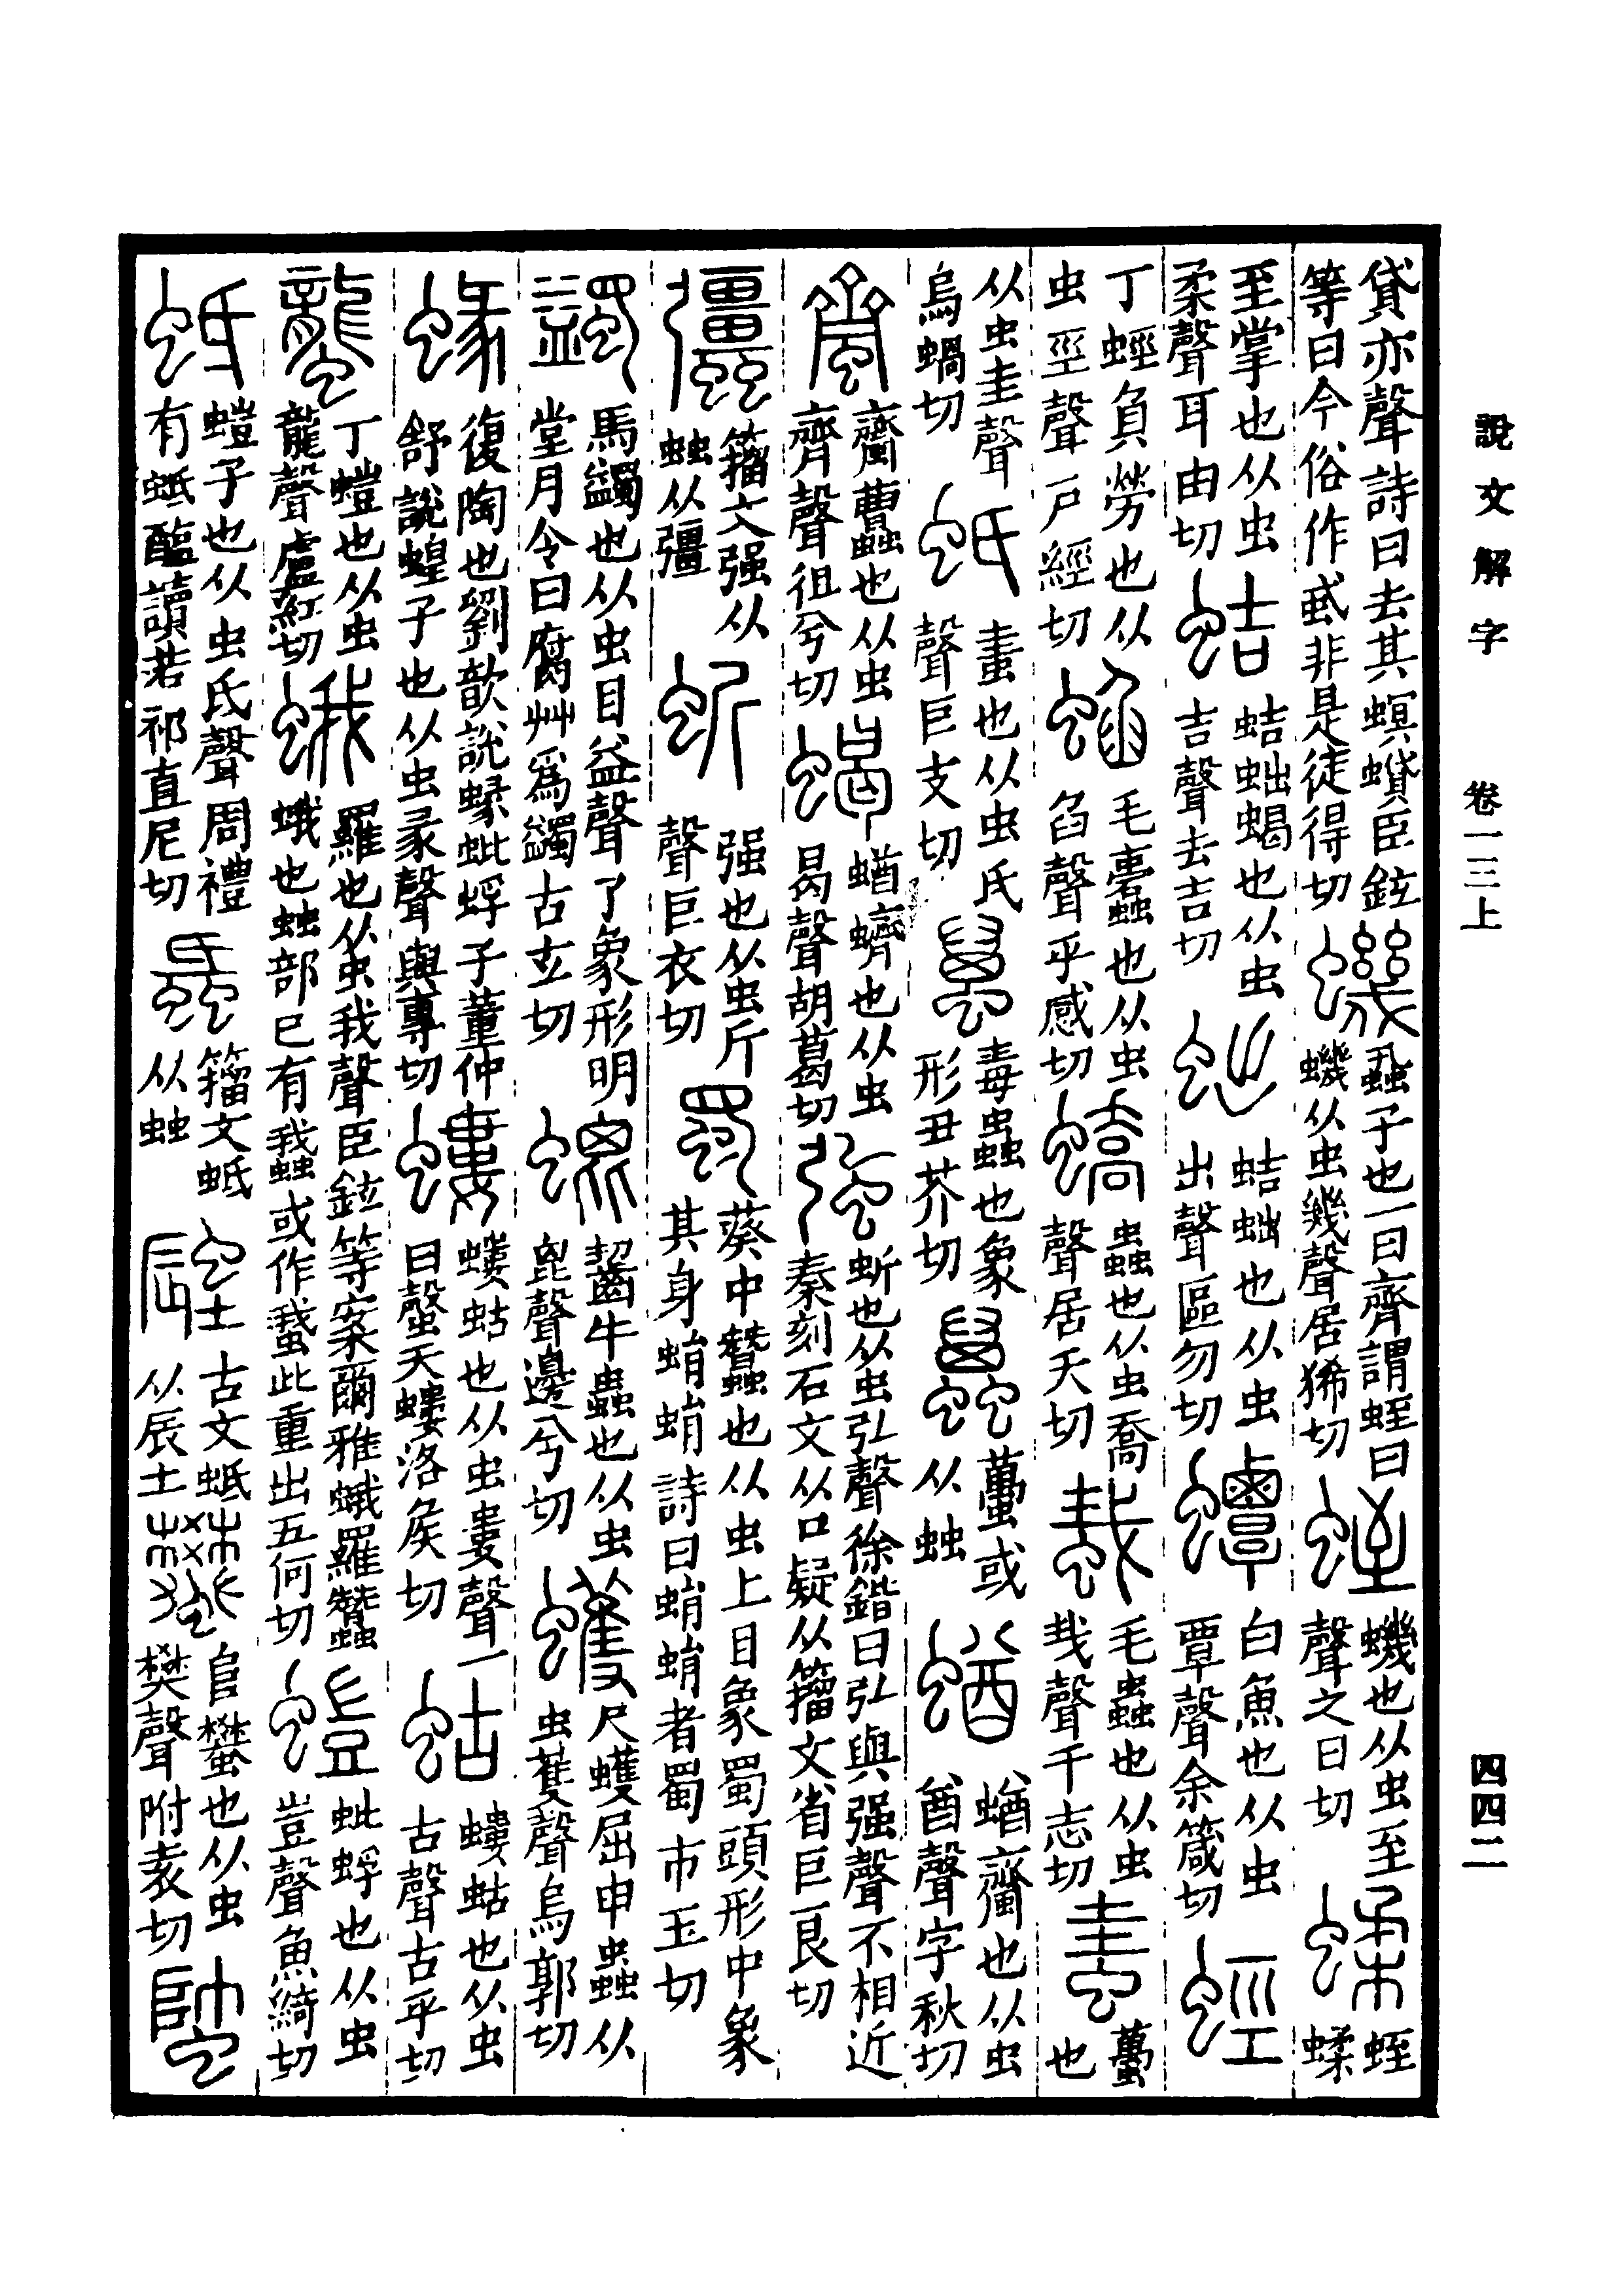 說文解字 卷一三上 四四二
貸亦聲詩曰去其螟蟘臣鉉等曰今俗作䘍非是徒得切 蟣 蝨子也一曰齊謂蛭曰蟣从虫幾聲居豨切 蛭 蟣也从虫至聲之日切 蝚 蛭蝚
至掌也从虫柔聲耳由切 蛣 蛣䖦蝎也从虫吉聲去吉切 䖦 蛣䖦也从虫出聲區勿切 蟫 白魚也从虫覃聲余箴切 蛵
丁蛵負勞也从虫巠聲戶經切 蜭 毛蠹也从虫臽聲乎感切 蟜 蟲也从虫喬聲居夭切 毛蟲也从虫𢦏聲千志切 畫 蠆也
从虫圭聲烏蝸切 蚔 畫也从虫氏聲巨支切 蠆 毒蟲也象形丑芥切 蠆或从䖵 蝤 蝤齏也从虫酋聲字秋切
齏 齏也从虫齊聲徂兮切 蝎 蝤蠐也从虫曷聲胡葛切 强 蚚也从虫弘聲徐鍇曰弘與强聲不相近秦刻石文从口疑从籀文省巨良切
籀文强从䖵从彊 蚚 强也从虫斤聲巨衣切 蜀 葵中蠶也从虫上目象蜀頭形中象其身蜎蜎詩曰蜎蜎者蜀市玉切
蠲 馬蠲也从虫目益聲了象形明堂月令曰腐艸爲蠲古玄切 螕 齧牛蟲也从虫𣬉聲邊兮切 蠖 尺蠖屈申蟲从虫蒦聲烏郭切
蝝 復陶也劉歆說蝝蚍蜉子董仲舒說蝗子也从虫彖聲與專切 螻 螻蛄也从虫婁聲一曰天螻洛矦切 蛄 螻蛄也从虫古聲古乎切
蠪 丁螘也从虫龍聲盧紅切 蛾 羅也从虫我聲臣鉉等案爾雅蛾羅蠶蛾也䖵部已有或作此重出五何切 螘 蚍蜉也从虫豈聲魚綺切
蚳 螘子也从虫氐聲周禮有蚳醢讀若祁直尼切 籀文蚳从䖵 古文蚳从辰土 蠜 𨸏蠜也从虫樊聲附袁切